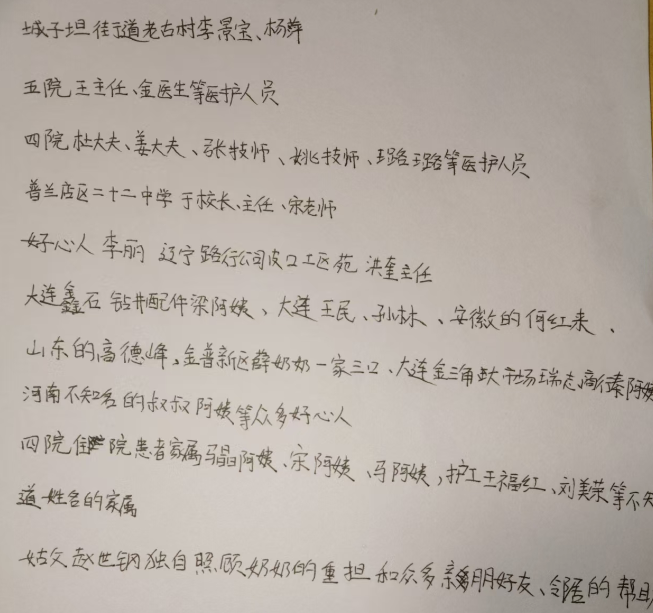 城子坦街道老古村李景宝、杨萍
五院王主任、金医生等医护人员
四院杜大夫、姜大夫、张技师、姚技师、璐璐等医护人员
普兰店区二十二中学于校长、主任、宋老师
好心人 李丽 辽宁路行公司皮口工区苑洪奎主任
大连鑫石钻井配件梁阿姨、大连王民、孙林、安徽的何红来、
山东的高德峰，金普新区薛奶奶一家三口、大连金三角大市场瑞志商行秦阿姨
河南不知名的叔叔阿姨等众多好心人
四院住院患者家属马晶阿姨、宋阿姨、马阿姨，护工王福红、刘美荣等不知
道姓名的家属
姑父赵世钢独自照顾奶奶的重担和众多亲朋好友、邻居的帮